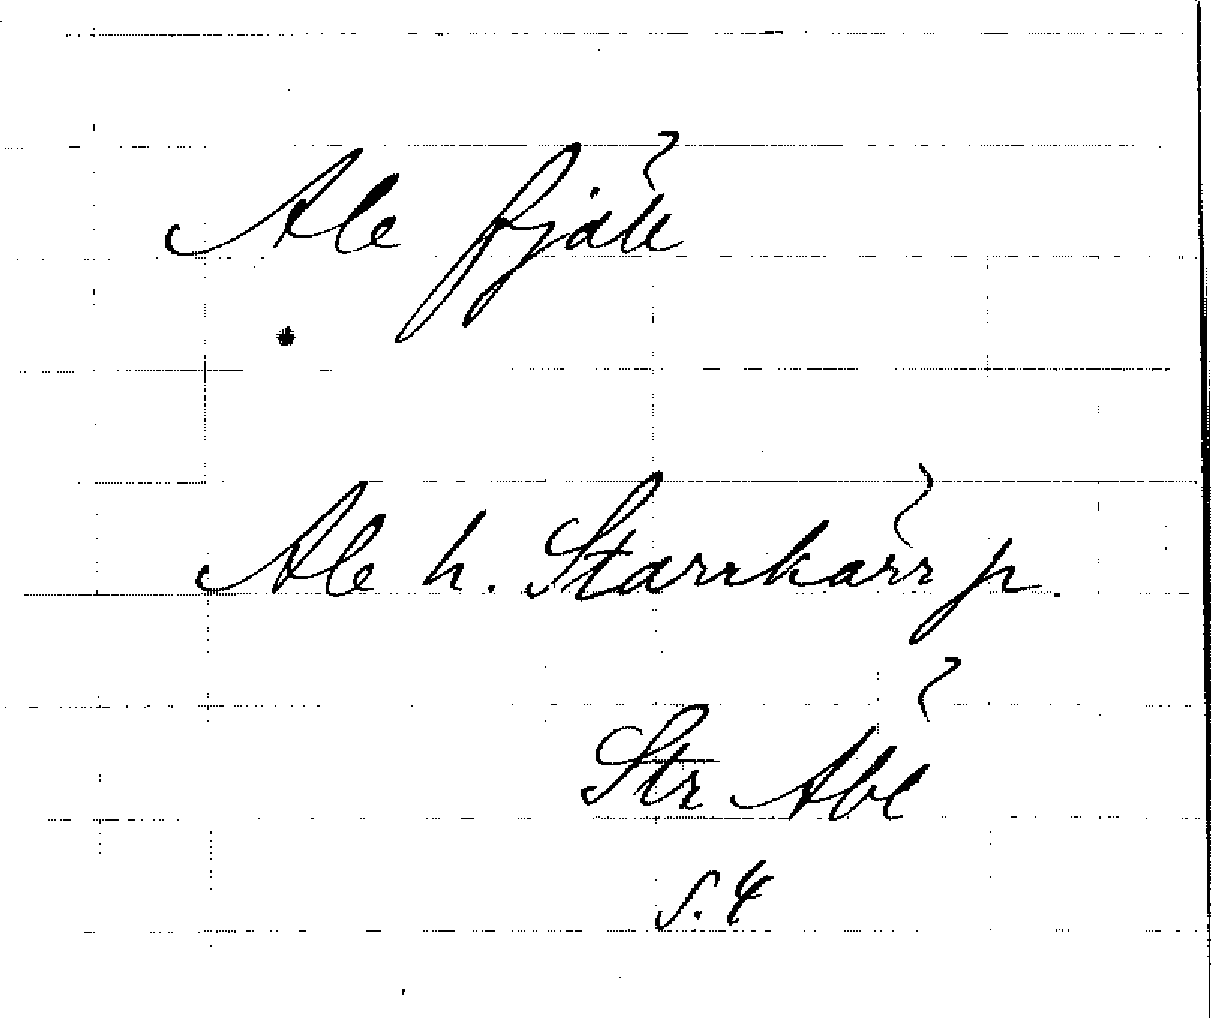 Ale fjäll
Ale h. Starrkärr p.
Str Abl
s. 4